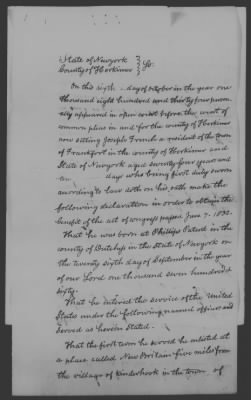 State of Newyork
County of Herkimer } Ss:
On this sixth day of October in the year one
thousand eight hundred and thirty four person
ally appeared in open court before the court of
common pleas in and for the county of Herkimer
now sitting Joseph French a resident of the town
of Frankfort in the county of Herkimer and
State of Newyork aged seventy four years and
ten days who being first duly sworn
according to law doth on his oath make the
following declaration in order to obtain the
benefit of the act of congress passed June 7. 1832.
That he was born at Philips Patent in the
county of Dutchess in the State of Newyork on
the twenty sixth day of September in the year
of our Lord one thousand seven hundred &
sixty.
That he entered the service of the United
States under the following named officers and
served as herein stated.
That the first term he served he enlisted at
a place called New Britain five miles from
the village of Kinderhook in the town of